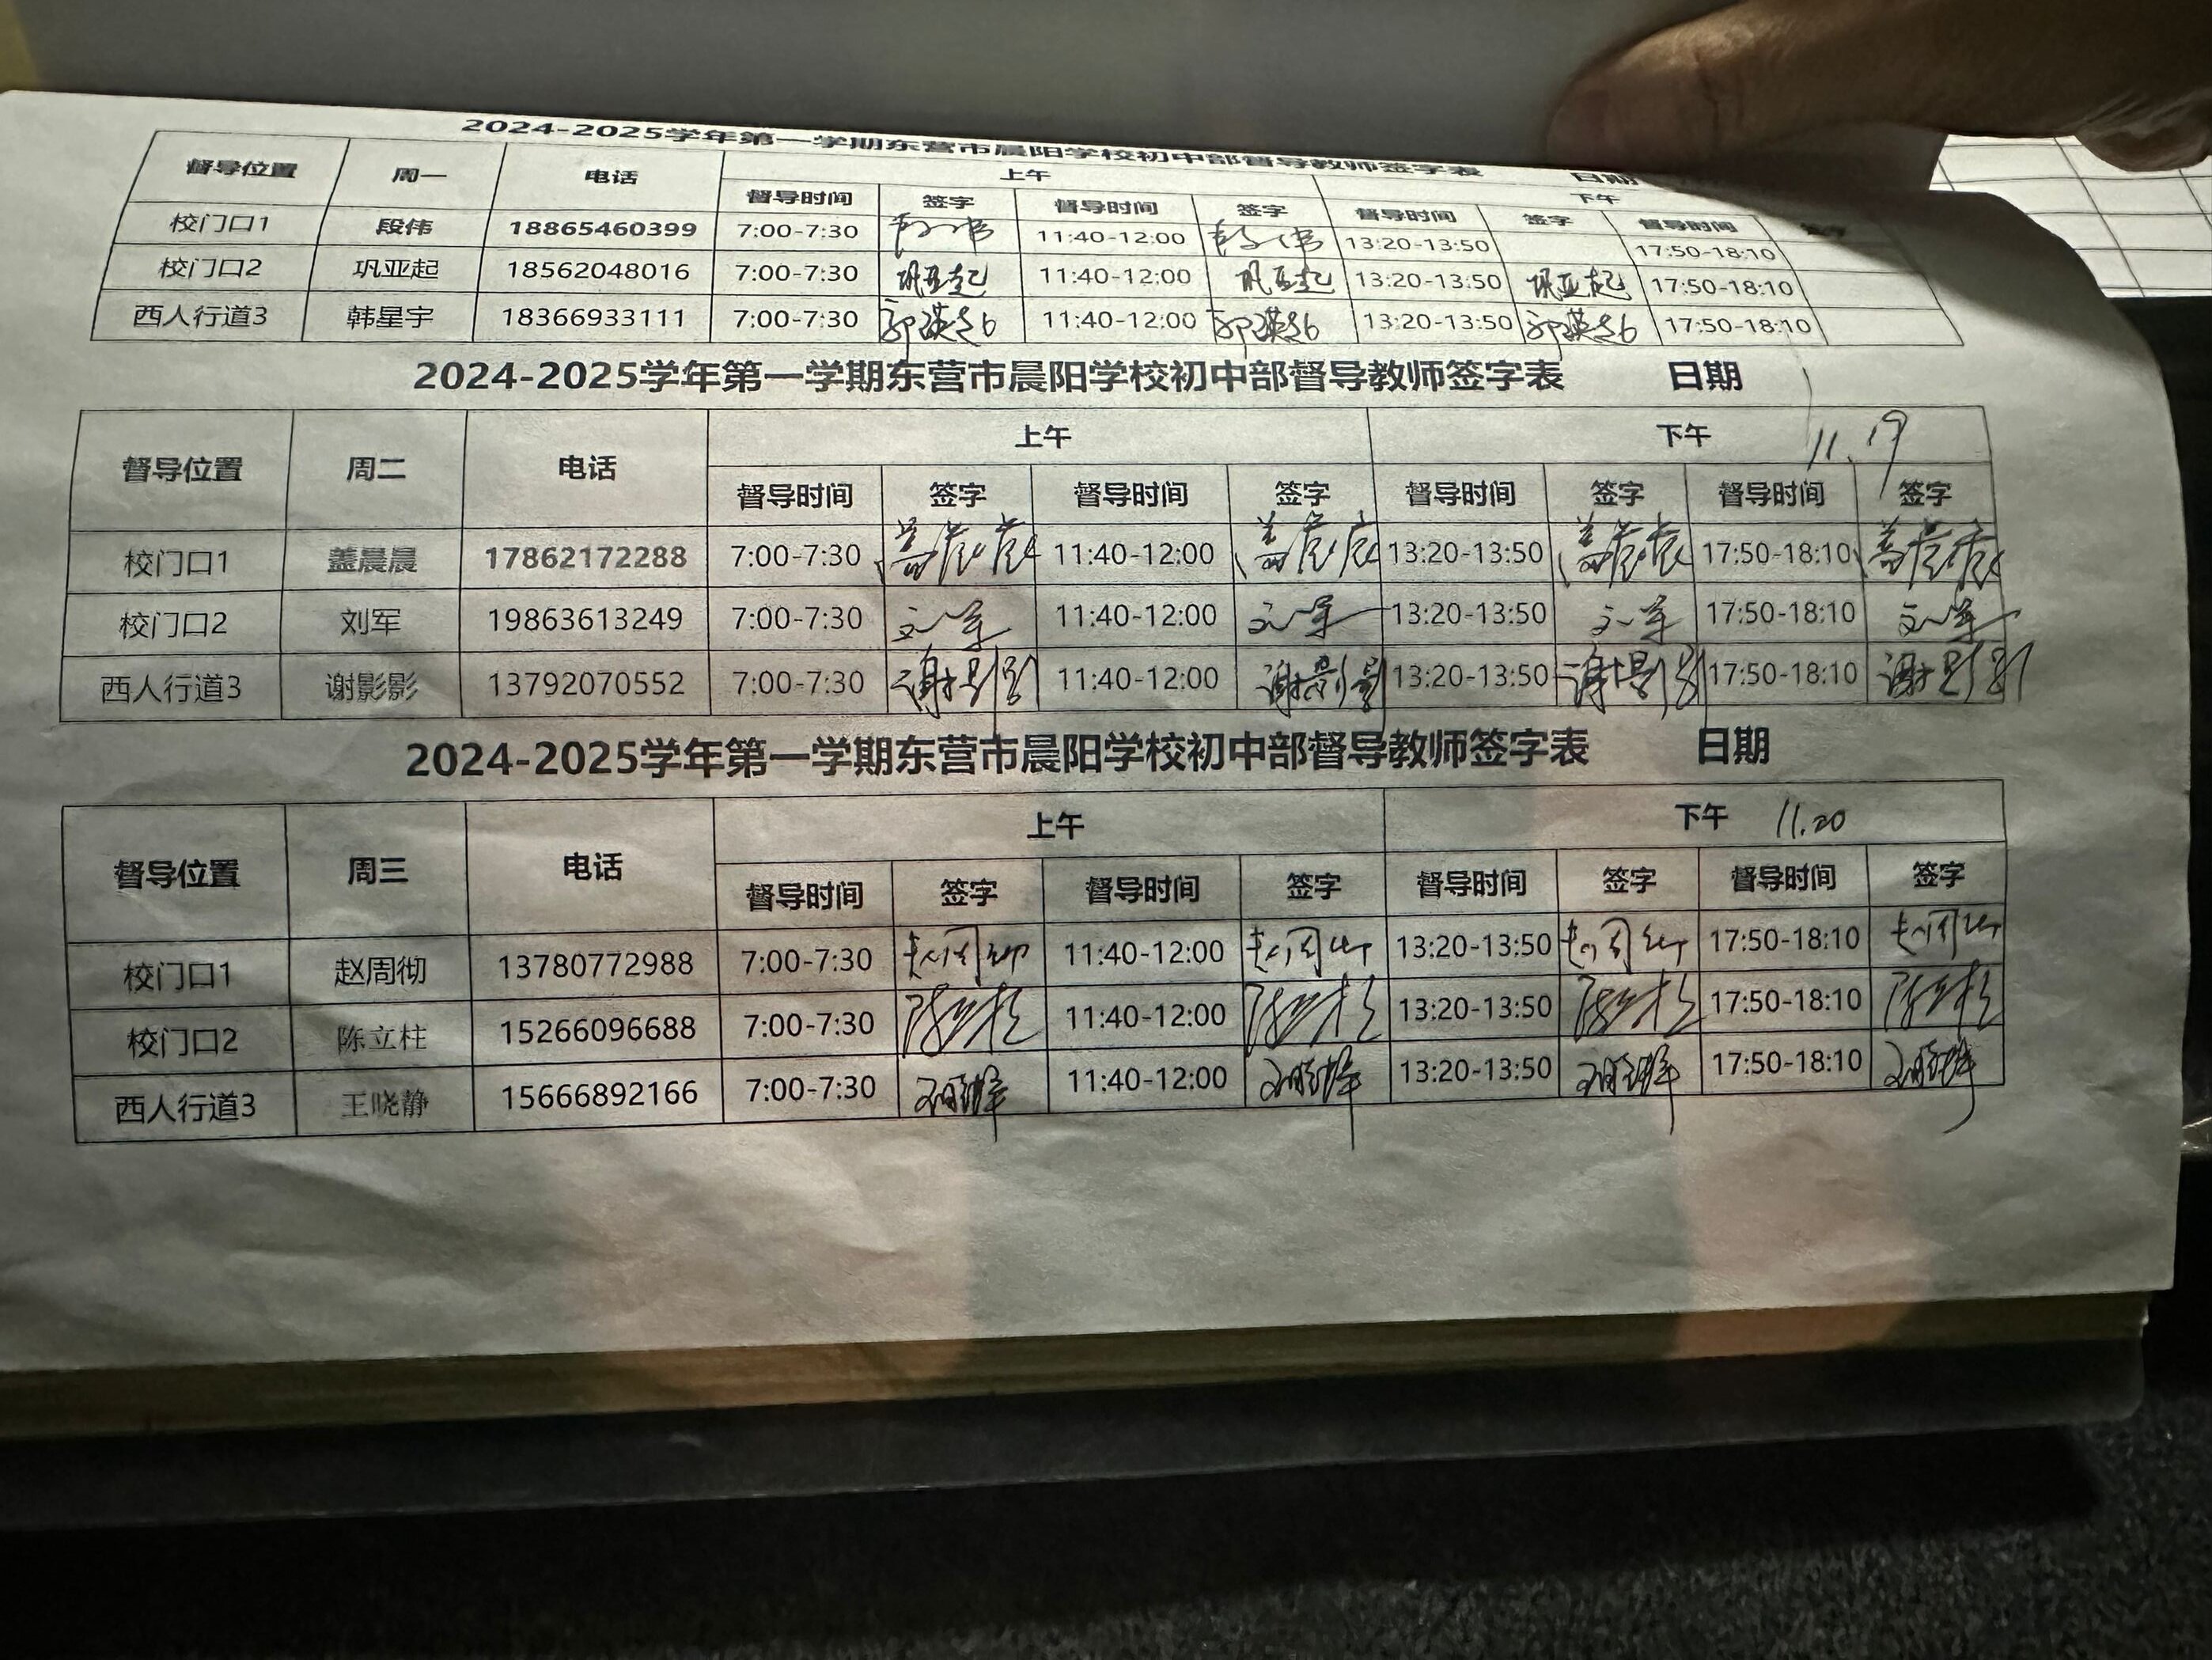 2024-2025学年第一学期东营市晨阳学校初中部督导教师签字表 日期
督导位置 周一 电话 上午 下午
督导时间 签字 督导时间 签字 督导时间 签字 督导时间 签字
校门口1 段伟 18865460399 7:00-7:30 11:40-12:00 13:20-13:50 17:50-18:10
校门口2 巩亚起 18562048016 7:00-7:30 巩亚起 11:40-12:00 巩亚起 13:20-13:50 巩亚起 17:50-18:10
西人行道3 韩星宇 18366933111 7:00-7:30 11:40-12:00 13:20-13:50 17:50-18:10
2024-2025学年第一学期东营市晨阳学校初中部督导教师签字表 日期
督导位置 周二 电话 上午 下午 11.19
督导时间 签字 督导时间 签字 督导时间 签字 督导时间 签字
校门口1 盖晨晨 17862172288 7:00-7:30 盖晨晨 11:40-12:00 盖晨晨 13:20-13:50 盖晨晨 17:50-18:10 盖晨晨
校门口2 刘军 19863613249 7:00-7:30 刘军 11:40-12:00 刘军 13:20-13:50 刘军 17:50-18:10 刘军
西人行道3 谢影影 13792070552 7:00-7:30 谢影影 11:40-12:00 谢影影 13:20-13:50 谢影影 17:50-18:10 谢影影
2024-2025学年第一学期东营市晨阳学校初中部督导教师签字表 日期
督导位置 周三 电话 上午 下午 11.20
督导时间 签字 督导时间 签字 督导时间 签字 督导时间 签字
校门口1 赵周彻 13780772988 7:00-7:30 赵周彻 11:40-12:00 赵周彻 13:20-13:50 赵周彻 17:50-18:10 赵周彻
校门口2 陈立柱 15266096688 7:00-7:30 陈立柱 11:40-12:00 陈立柱 13:20-13:50 陈立柱 17:50-18:10 陈立柱
西人行道3 王晓静 15666892166 7:00-7:30 王晓静 11:40-12:00 王晓静 13:20-13:50 王晓静 17:50-18:10 王晓静